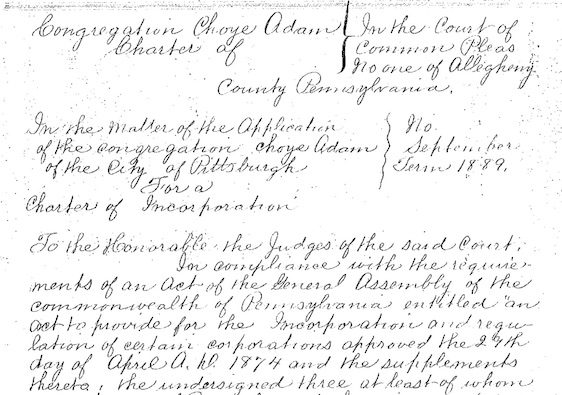 Congregation Choye Adam } In the Court of
Charter of } Common Pleas
No one of Allegheny
County Pennsylvania.
In the Matter of the Application } No.
of the congregation Choye Adam } September
of the City of Pittsburgh } Term 1889.
For a
Charter of Incorporation
To the Honorable the Judges of the said Court;
In compliance with the require-
ments of an Act of the General Assembly of the
commonwealth of Pennsylvania entitled "an
act to provide for the Incorporation and regu-
lation of certain corporations approved the 29th
day of April A. D. 1874 and the supplements
thereto; the undersigned three at least of whom